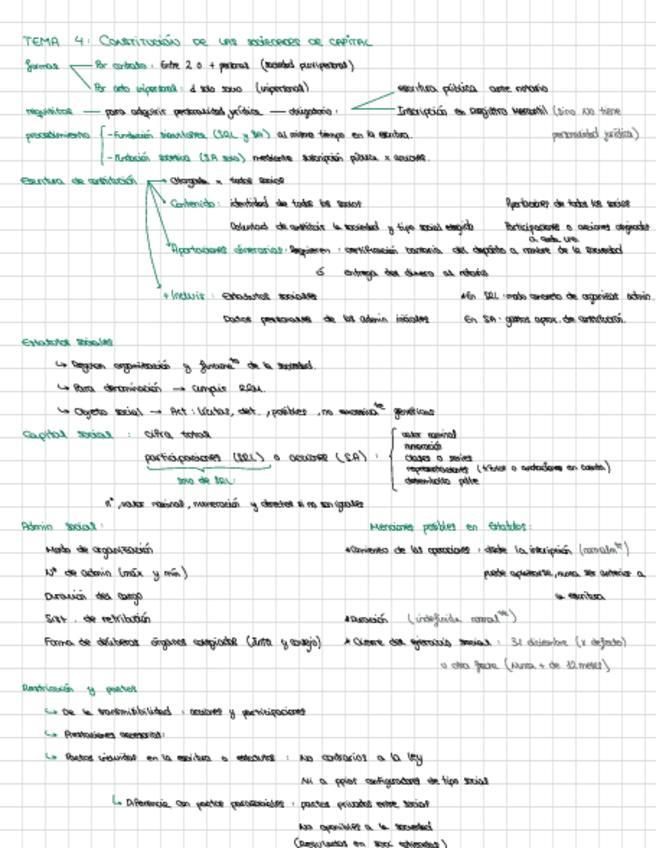 TEMA 4: CONSTITUCIÓN DE LAS SOCIEDADES DE CAPITAL
formas
Por contrato: Entre 2 o + personas (sociedad pluripersonal)
Por acto unipersonal: 1 solo socio (unipersonal)
requisitos — para adquirir personalidad jurídica — obligatorio:
escritura pública ante notario
Inscripción en Registro Mercantil (sino no tiene personalidad jurídica)
procedimiento
- Fundación simultánea (SRL y SA) al mismo tiempo en la escritura.
- Fundación sucesiva (SA solo) mediante suscripción pública x acciones.
Escritura de constitución
Otorgada x todos socios
Contenido: identidad de todos los socios
Aportaciones de todos los socios
Voluntad de constituir la sociedad y tipo social elegido
Participaciones o acciones asignadas a cada uno
Aportaciones dinerarias: Requieren: certificación bancaria del depósito a nombre de la sociedad
ó entrega del dinero al notario
+ Incluir: Estatutos sociales
* En SRL: modo concreto de organizar admin.
Datos personales de los admin iniciales
En SA: gastos aprox. de constitución.
Estatutos sociales
↳ Regulan organización y funcionato de la sociedad.
↳ Para denominación → cumplir
↳ Objeto social → Act: lícitas, det., posibles, no genéricas
Capital social: cifra total
participaciones (SRL) o acciones (SA):
valor nominal
numeración
clases o series
representaciones (títulos o anotaciones en cuenta)
desembolso pdte
solo de SRL:
nº, valor nominal, numeración y derechos si no son iguales
Admin social:
Modo de organización
Nº de admin (máx y mín)
Duración del cargo
Sist. de retribución
Forma de deliberar órganos colegiados (Junta y consejo)
Menciones posibles en Estatutos:
* Comienzo de las operaciones: desde la inscripción (normalmte)
puede aplazarse, nunca ser anterior a la escritura
* Duración (indefinida normalte)
* Cierre del ejercicio social: 31 diciembre (x defecto)
u otra fecha (nunca + de 12 meses)
Restricción y pactos
↳ De la transmisibilidad: acciones y participaciones
↳ Prestaciones accesorias:
↳ Pactos incluidos en la escritura o estatutos: No contrarios a la ley
Ni a ppios configuradores de tipo social
↳ Diferencia con pactos parasociales: pactos privados entre socios
No oponibles a la sociedad